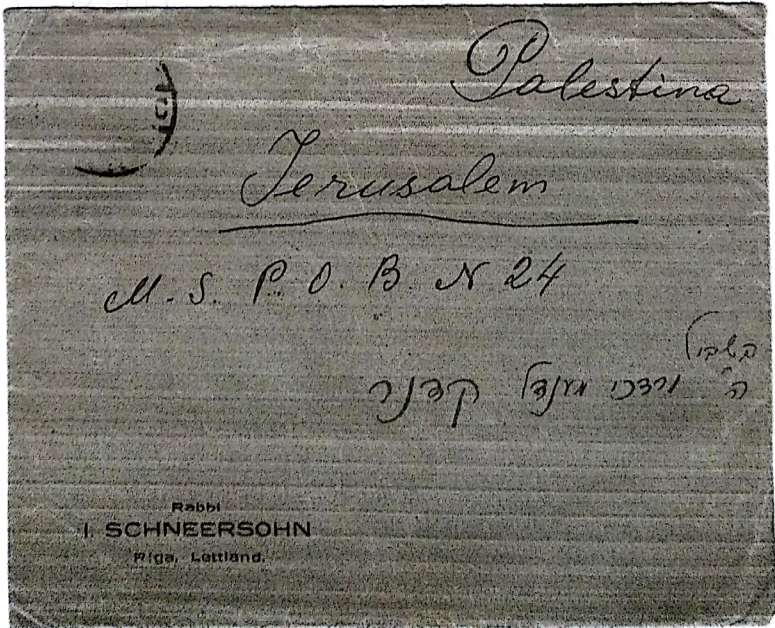 Palestina
Jerusalem
M. S. P. O. B N 24
בשביל
ה' מרדכי מענדל קדנר
Rabbi
I. SCHNEERSOHN
Riga, Lettland.